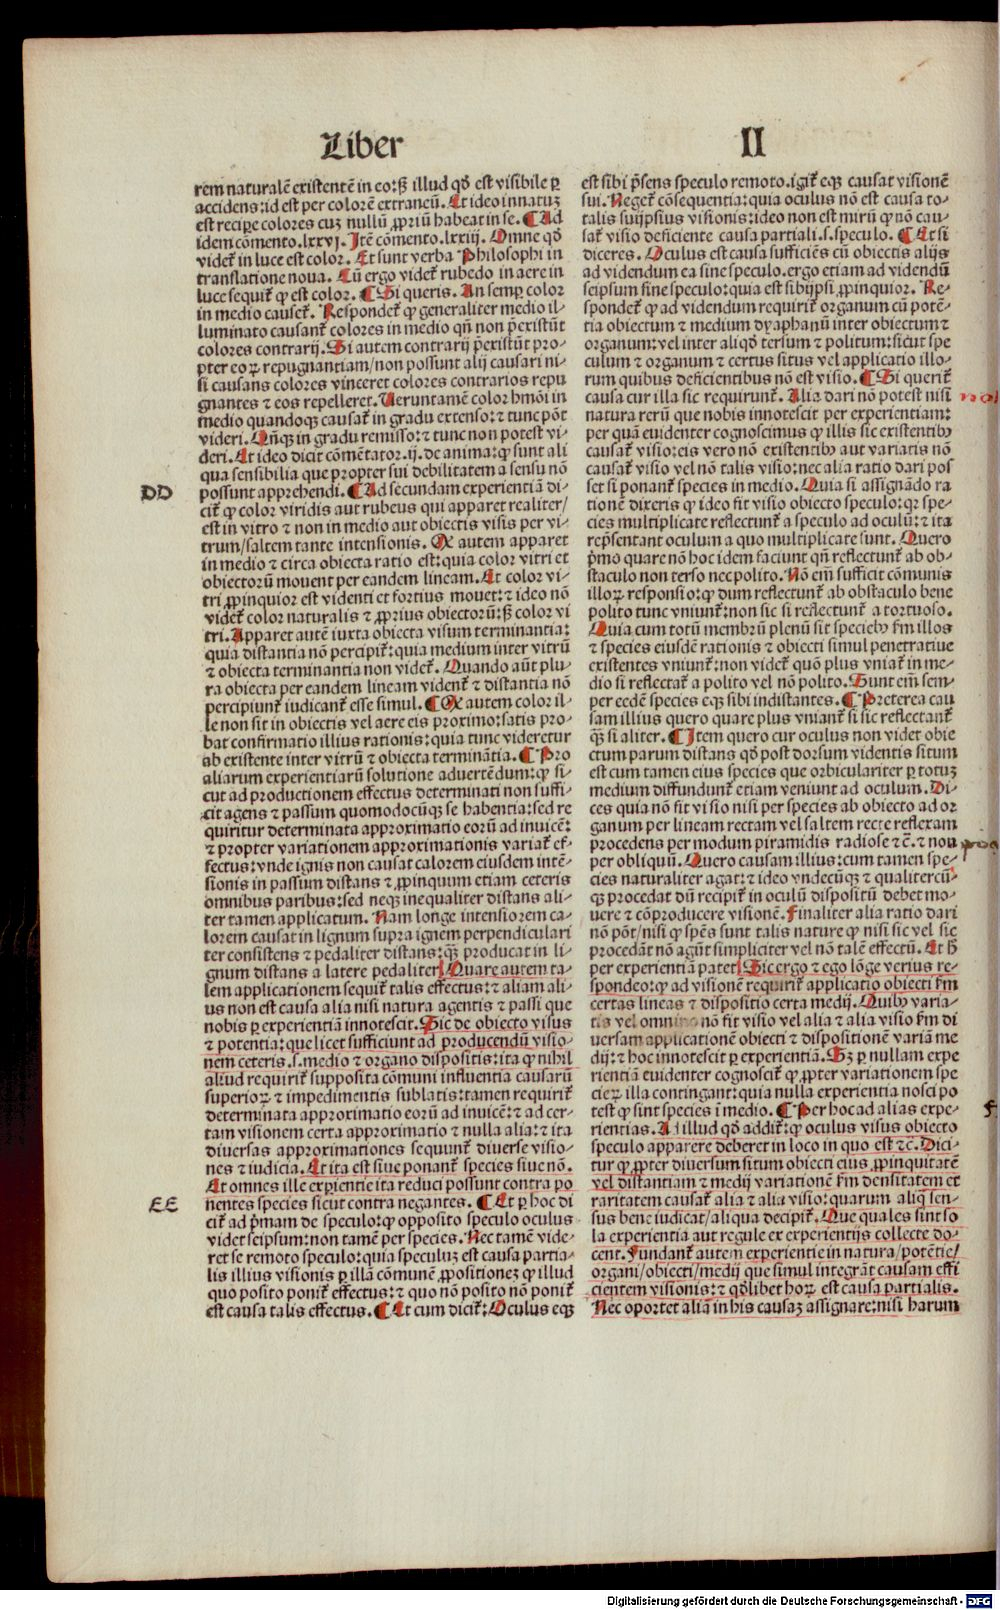 Liber
II
rem naturalē existentē in eo: sꝫ illud qd̄ est visibile ꝑ
accidens: id est per colorē extraneū. Et ideo innatuꝫ
est recipe colores cuꝫ nullū ꝓriū habeat in se. ¶ Ad
idem cōmento. lxxvj. Itē cōmento. lxxiij. Omne qd̄
videt̄ in luce est color. Et sunt verba Philosophi in
translatione noua. Cū ergo videt̄ rubedo in aere in
luce sequit̄ ꝙ est color. ¶ Si queris. An semꝑ color
in medio causet̄. Respondet̄ ꝙ generaliter medio il-
luminato causant̄ colores in medio qn̄ non p̄existūt
colores contrarij. Si autem contrarij p̄existūt pro-
pter eoꝝ repugnantiam/non possunt alij causari ni-
si causans colores vinceret colores contrarios repu
gnantes ⁊ eos repelleret. Ueruntamē color hmōi in
medio quandoqꝫ causat̄ in gradu extenso: ⁊ tunc pōt
videri. Qn̄qꝫ in gradu remisso: ⁊ tunc non potest vi-
deri. Et ideo dicit cōmētator .ij. de anima: ꝙ sunt ali
qua sensibilia que propter sui debilitatem a sensu nō
DD
possunt apprehendi. ¶ Ad secundam experientiā di-
cit̄ ꝙ color viridis aut rubeus qui apparet realiter/
est in vitro ⁊ non in medio aut obiectis visis per vi-
trum/saltem tante intensionis. Q autem apparet
in medio ⁊ circa obiecta ratio est: quia color vitri et
obiectorū mouent per eandem lineam. Et color vi-
tri ꝓpinquior est videnti et fortius mouet: ⁊ ideo nō
videt̄ color naturalis ⁊ ꝓprius obiectorū: sꝫ color vi
tri. Apparet autē iuxta obiecta visum terminantia:
quia distantia nō percipit̄: quia medium inter vitrū
⁊ obiecta terminantia non videt̄. Quando aūt plu-
ra obiecta per eandem lineam vident̄ ⁊ distantia nō
percipiunt̄ iudicant̄ esse simul. ¶ Q autem color il-
le non sit in obiectis vel aere eis proximo: satis pro-
bat confirmatio illius rationis: quia tunc videretur
ab existente inter vitrū ⁊ obiecta terminātia. ¶ Pro
aliarum experientiarū solutione aduertēdum: ꝙ si-
cut ad productionem effectus determinati non suffi-
cit agens ⁊ passum quomodocūqꝫ se habentia: sed re
quiritur determinata approximatio eorū ad inuicē:
⁊ propter variationem approximationis variat̄ ef-
fectus: vnde ignis non causat calorem eiusdem intē-
sionis in passum distans ⁊ ꝓpinquum etiam ceteris
omnibus paribus: sed neqꝫ inequaliter distans ali-
ter tamen applicatum. Nam longe intensiorem ca-
lorem causat in lignum supra ignem perpendiculari
ter consistens ⁊ pedaliter distans: qꝫ̄ producat in li-
gnum distans a latere pedaliter. Quare autem ta-
lem applicationem sequit̄ talis effectus: ⁊ aliam ali-
us non est causa alia nisi natura agentis ⁊ passi que
nobis ꝑ experientiā innotescit. Sic de obiecto visus
⁊ potentia: que licet sufficiunt ad producendū visio-
nem ceteris .s. medio ⁊ organo dispositis: ita ꝙ nihil
aliud requirit̄ supposita cōmuni influentia causarū
superioꝝ ⁊ impedimentis sublatis: tamen requirit̄
determinata approximatio eorū ad inuicē: ⁊ ad cer-
tam visionem certa approximatio ⁊ nulla alia: ⁊ ita
diuersas approximationes sequunt̄ diuerse visio-
nes ⁊ iudicia. Et ita est siue ponant̄ species siue nō.
Et omnes ille exꝑientie ita reduci possunt contra po
EE
nentes species sicut contra negantes. ¶ Et ꝑ hoc di
cit̄ ad p̄mam de speculo: ꝙ opposito speculo oculus
videt seipsum: non tamē per species. Nec tamē vide-
ret se remoto speculo: quia speculuꝫ est causa partia-
lis illius visionis ꝑ illā cōmunē ꝓpositioneꝫ ꝙ illud
quo posito ponit̄ effectus: ⁊ quo nō posito nō ponit̄
est causa talis effectus. ¶ Et cum dicit̄: Oculus eqꝫ
est sibi p̄sens speculo remoto. igit̄ eqꝫ causat visionē
sui. Neget̄ cōsequentia: quia oculus nō est causa to-
talis suijpsius visionis: ideo non est mirū ꝙ nō cau-
sat̄ visio deficiente causa partiali .s. speculo. ¶ Et si
diceres. Oculus est causa sufficiēs cū obiectis alijs
ad videndum ea sine speculo. ergo etiam ad videndū
seipsum sine speculo: quia est sibijpsi ꝓpinquior. Re-
spondet̄ ꝙ ad videndum requirit̄ organum cū potē-
tia obiectum ⁊ medium dyaphanū inter obiectum ⁊
organum: vel inter aliqd̄ tersum ⁊ politum: sicut spe
culum ⁊ organum ⁊ certus situs vel applicatio illo-
rum quibus deficientibus nō est visio. ¶ Si querit̄
causa cur illa sic requirunt̄. Alia dari nō potest nisi
natura rerū que nobis innotescit per experientiam:
per quā euidenter cognoscimus ꝙ illis sic existentibꝰ
causat̄ visio: eis vero nō existentibꝰ aut variatis nō
causat̄ visio vel nō talis visio: nec alia ratio dari pos
set si ponant̄ species in medio. Quia si assignādo ra
tionē dixeris ꝙ ideo fit visio obiecto speculo: qꝛ spe-
cies multiplicate reflectunt̄ a speculo ad oculū: ⁊ ita
rep̄sentant oculum a quo multiplicate sunt. Quero
p̄mo quare nō hoc idem faciunt qn̄ reflectunt̄ ab ob-
staculo non terso nec polito. Nō em̄ sufficit cōmunis
illoꝝ responsio: ꝙ dum reflectunt̄ ab obstaculo bene
polito tunc vniunt̄: non sic si reflectunt̄ a tortuoso.
Quia cum totū membrū plenū sit speciebꝰ fm illos
⁊ species eiusdē rationis ⁊ obiecti simul penetratiue
existentes vniunt̄: non videt̄ quō plus vniat̄ in me-
dio si reflectat̄ a polito vel nō polito. Sunt em̄ sem-
per eedē species eqꝫ sibi indistantes. ¶ Preterea cau
sam illius quero quare plus vniant̄ si sic reflectant̄
qꝫ̄ si aliter. ¶ Item quero cur oculus non videt obie
ctum parum distans qd̄ post dorsum videntis situm
est cum tamen eius species que orbiculariter ꝑ totuꝫ
medium diffundunt̄ etiam veniunt ad oculum. Di-
ces quia nō fit visio nisi per species ab obiecto ad or
ganum per lineam rectam vel saltem recte reflexam
procedens per modum piramidis radiose ⁊c̄. ⁊ non
per obliquū. Quero causam illius: cum tamen spe-
cies naturaliter agat: ⁊ ideo vndecūqꝫ ⁊ qualitercū-
qꝫ procedat dū recipit̄ in oculū dispositū debet mo-
uere ⁊ cōproducere visionē. Finaliter alia ratio dari
nō pōt/nisi ꝙ sp̄es sunt talis nature ꝙ nisi sic vel sic
procedāt nō agūt simpliciter vel nō talē effectū. Et h̄
per experientiā patet. Sic ergo ⁊ ego lōge verius re-
spondeo: ꝙ ad visionē requirit̄ applicatio obiecti fm
certas lineas ⁊ dispositio certa medij. Quibꝰ varia-
tis vel omnino nō fit visio vel alia ⁊ alia visio fm di
uersam applicationē obiecti ⁊ dispositionē variā me
dij: ⁊ hoc innotescit ꝑ experientiā. Sꝫ ꝑ nullam expe
rientiā euidenter cognoscit̄ ꝙ ꝓpter variationem spe
cieꝝ illa contingant: quia nulla experientia nosci po
test ꝙ sint species ī medio. ¶ Per hoc ad alias expe-
rientias. Ad illud qd̄ addit̄: ꝙ oculus visus obiecto
speculo apparere deberet in loco in quo est ⁊c̄. Dici-
tur ꝙ ꝓpter diuersum situm obiecti eius ꝓpinquitatē
vel distantiam ⁊ medij variationē fm densitatem et
raritatem causat̄ alia ⁊ alia visio: quarum aliqͣ sen-
sus bene iudicat/aliqua decipit̄. Que quales sint so
la experientia aut regule ex experientijs collecte do-
cent. Fundant̄ autem experientie in natura/potētie/
organi/obiecti/medij que simul integrāt causam effi
cientem visionis: ⁊ qd̄libet hoꝝ est causa partialis.
Nec oportet aliā in his causaꝫ assignare: nisi harum